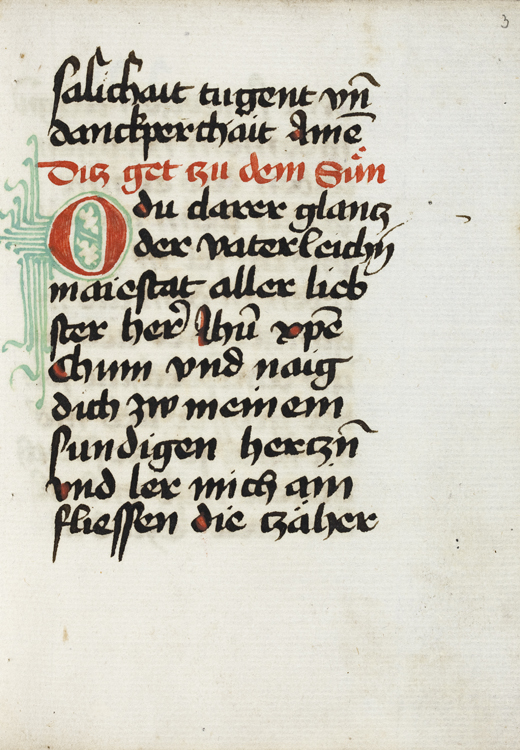 3
salichait tugent vn̄
danckperchait Amē
Ditz get tzu dem Sůn
O du clarer glantz
der vaterleichn̄
maiestat aller lieb
ster her̄ Jhū xpē
Chum vnd naig
dich zw meinem
sundigen hertzn̄
vnd ler mich ain
fliessen die tzäher